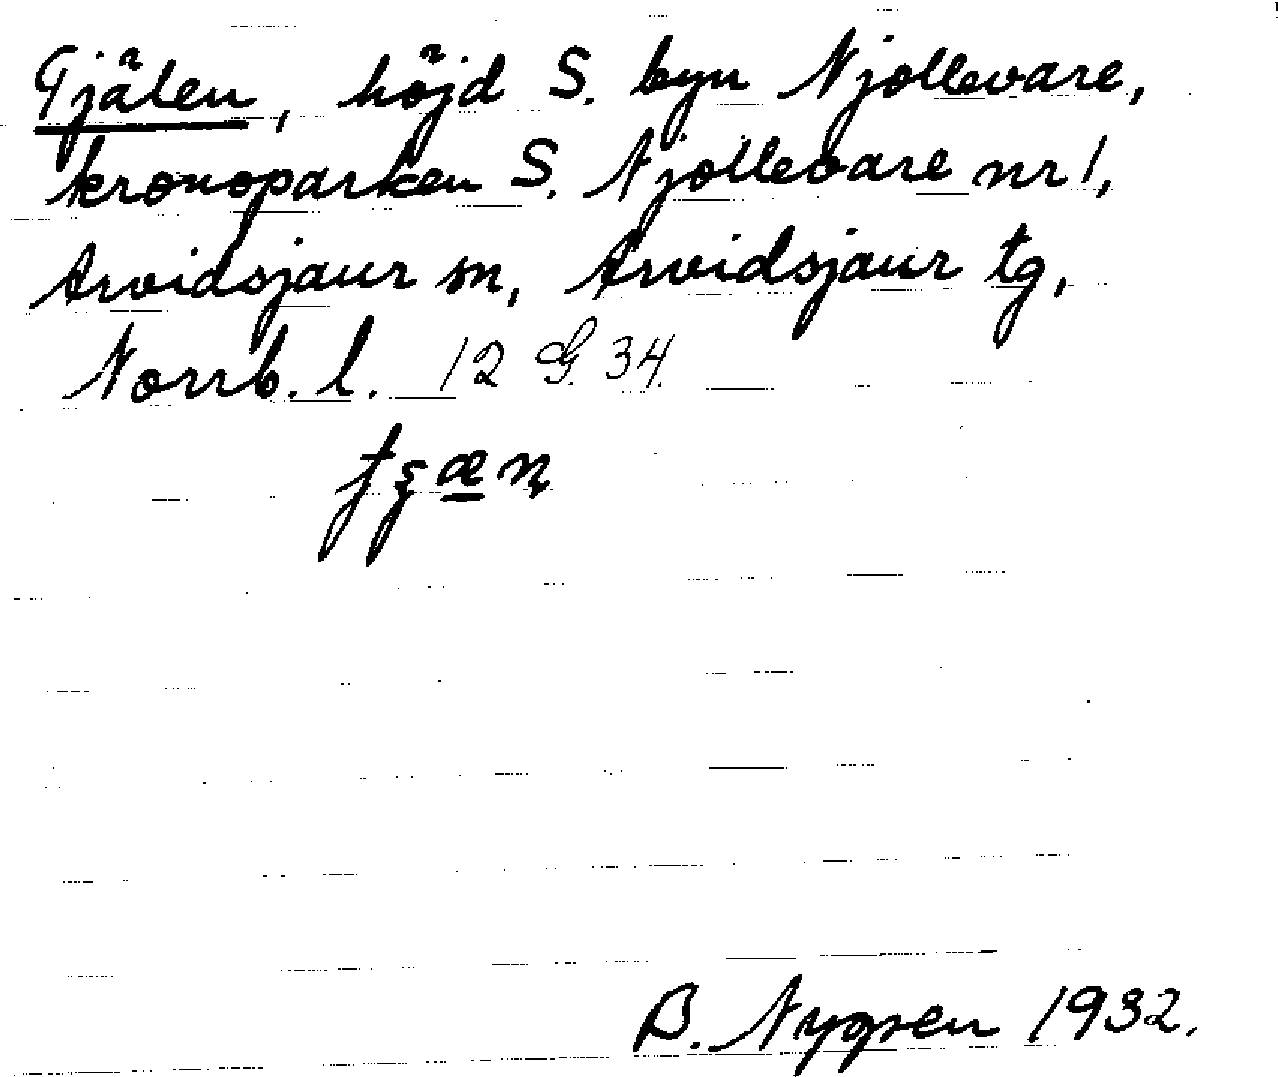 Tjälen, höjd S. byn Njallevare,
kronoparken S. Njallevare nr 1,
Arvidsjaur sn, Arvidsjaur tg,
Norrb. l. 12 G. 34.
B. Nygren 1932.